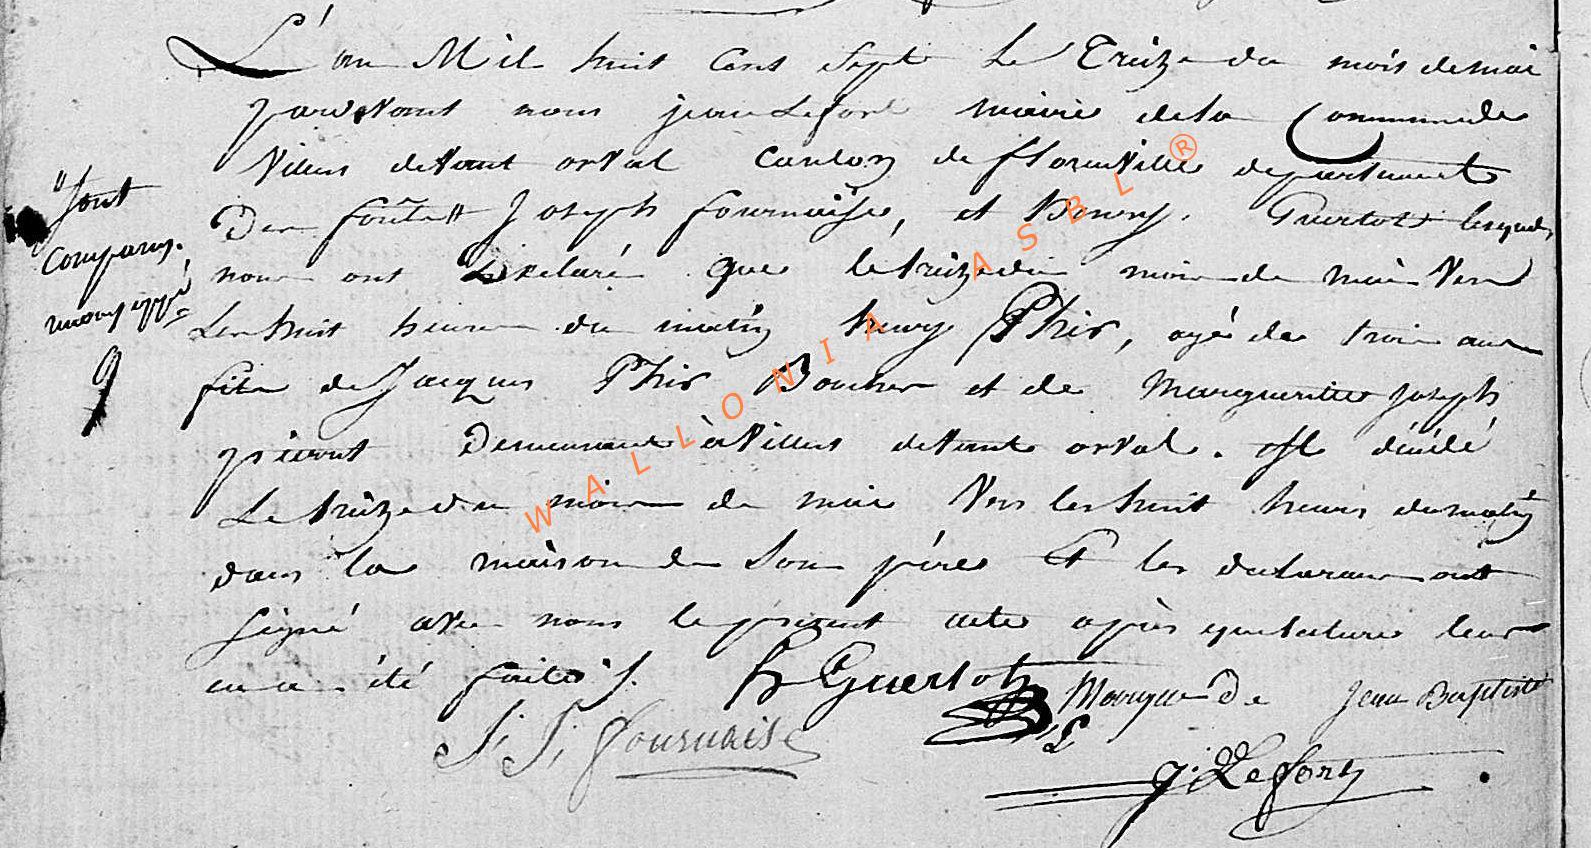 L'an Mil huit Cent Sept Le Treize du mois de mai
pardevant nous jean Lefort maire de la Commune de
Villers devant orval Canton de florenville departement
Des forêts Joseph fournaise, et henry. Guertot lesquels
nous ont Declaré que le treize du mois de mai Vers
Les huit heures du matin henry Thir, agé de trois ans
fils de Jacques Thir Boucher et de Marguerite Joseph
pierret Demeurant à Villers devant orval. est décédé
Le treize du mois de mai Vers les huit heures du matin
dans la maison de Son père Et les declarants ont
signé avec nous le present acte après que lecture leur
en a été faite.
"Sont
comparus.
9
H Guertot Marque De Jean Baptiste
J. J. fournaise
j. Lefort
WALLONIA ASBL ®